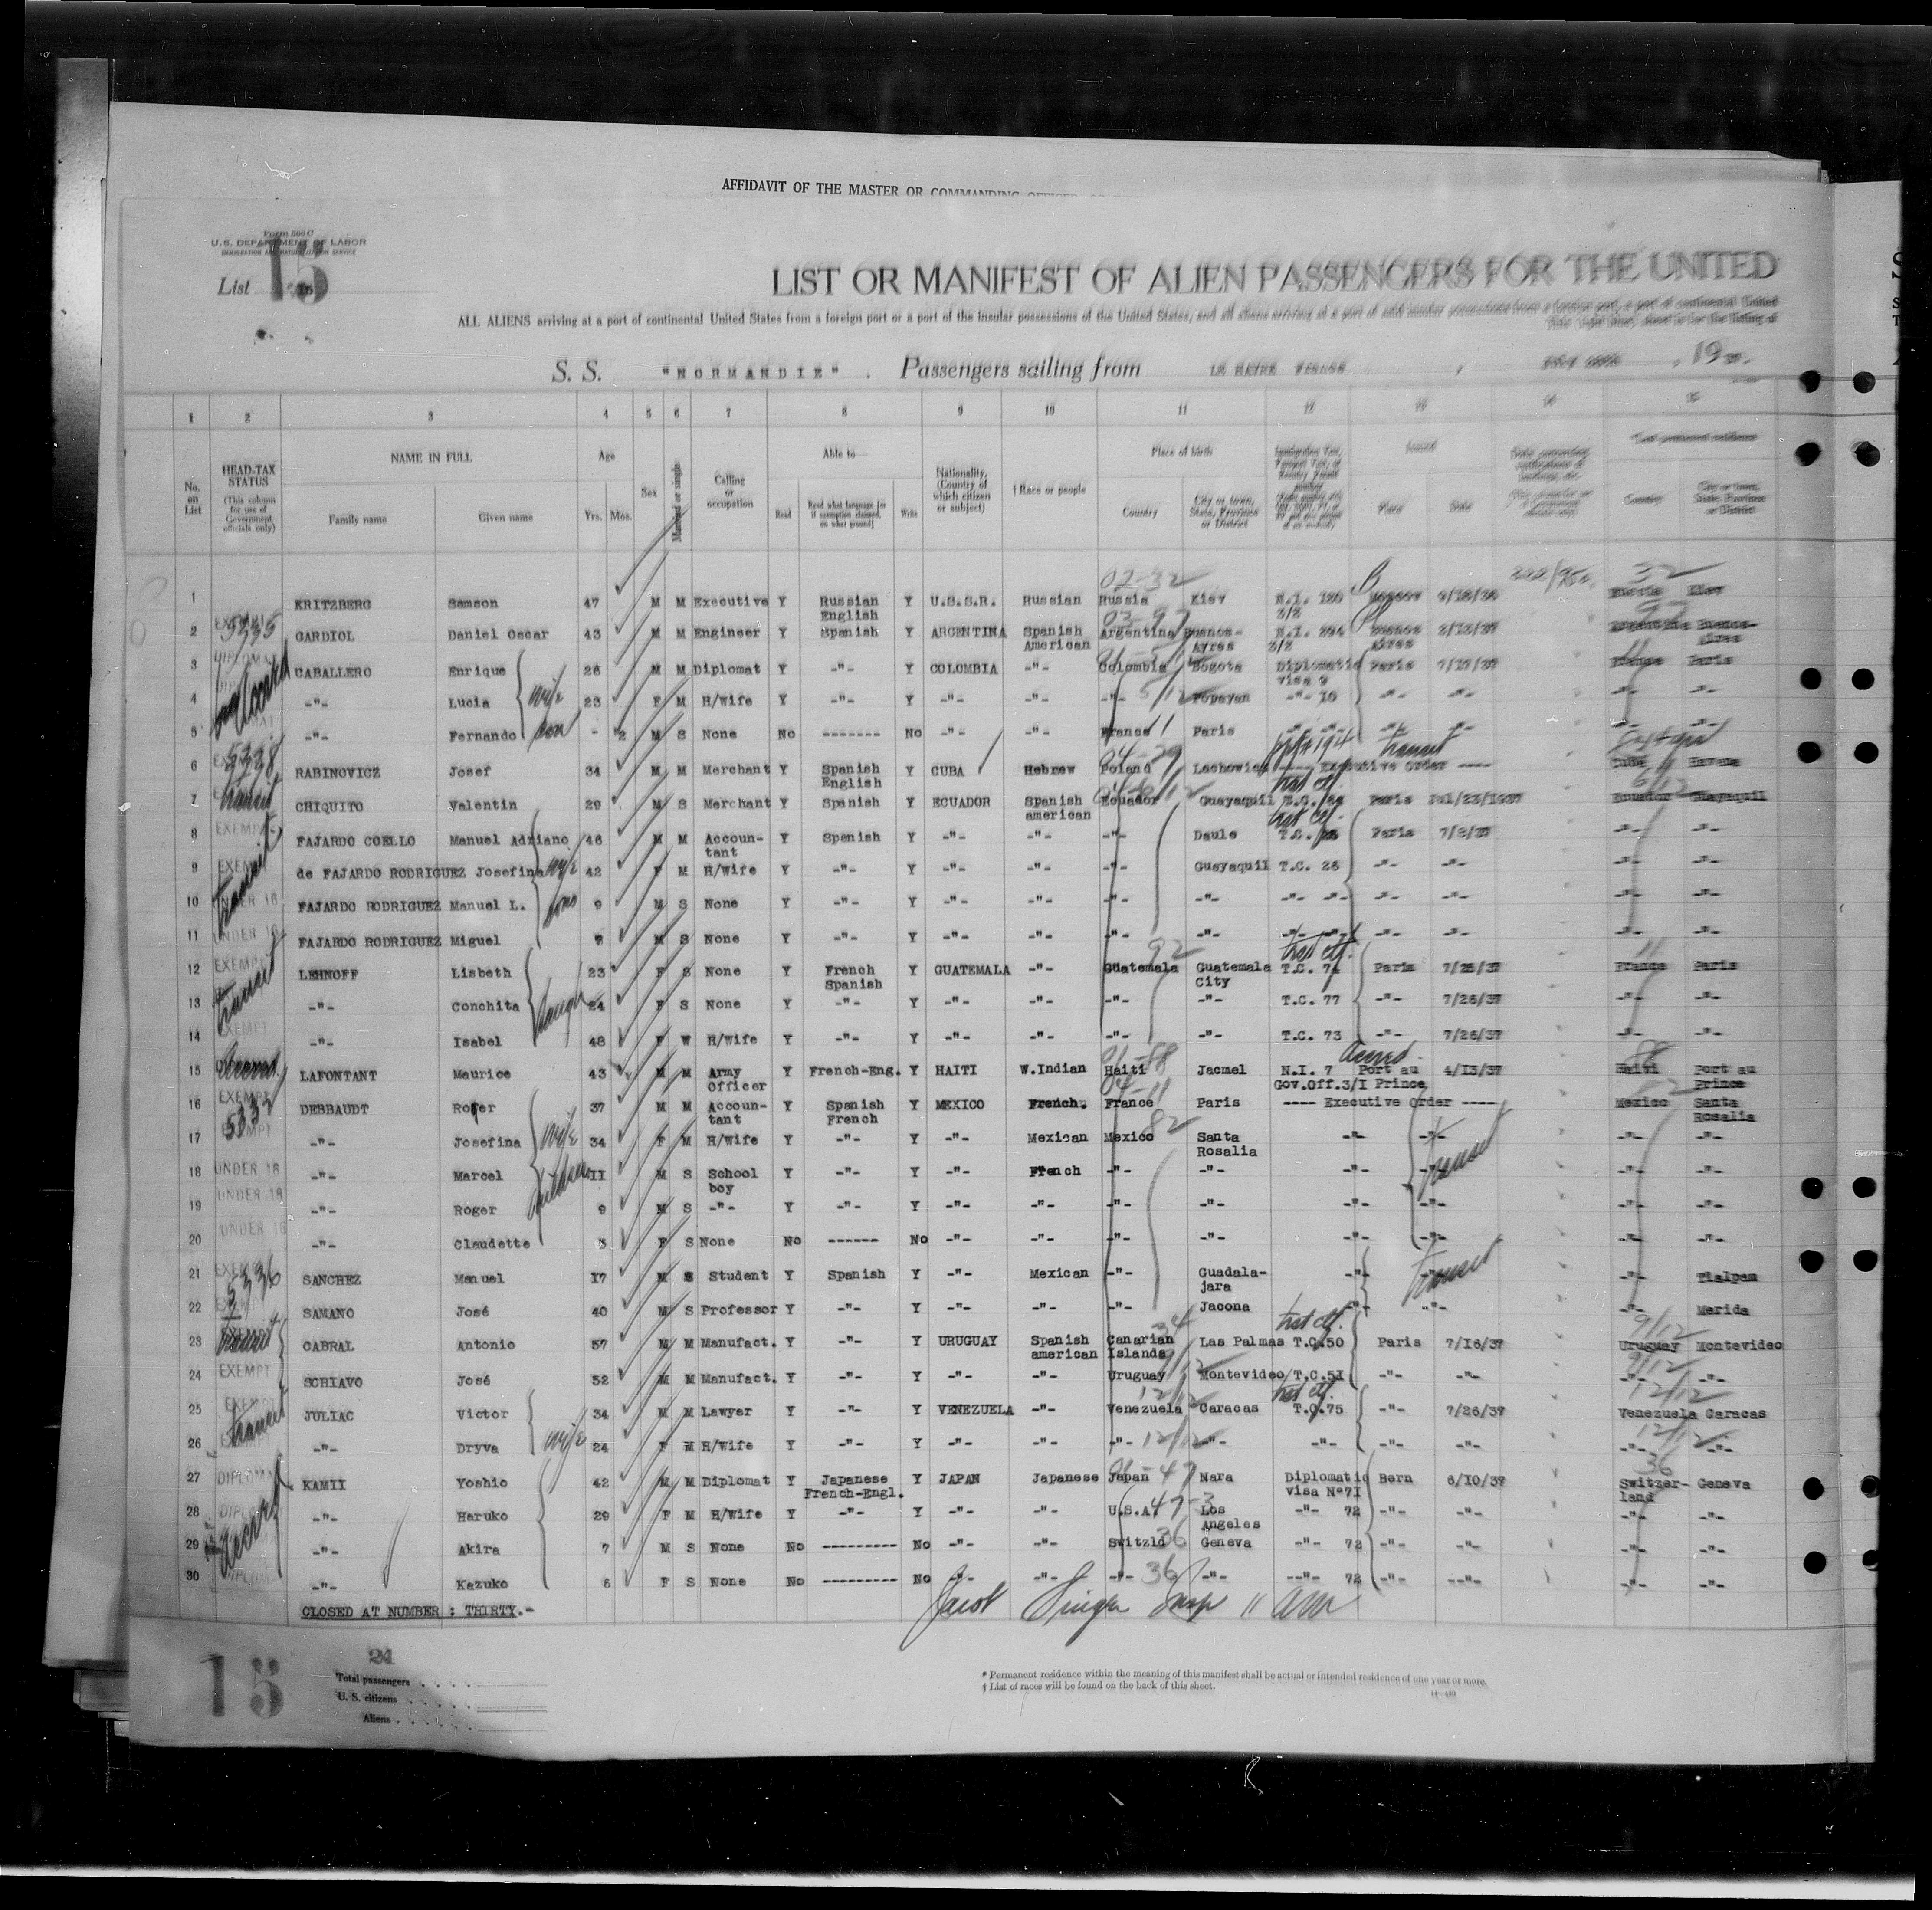 AFFIDAVIT OF THE MASTER OR COMMANDING OFFICER
Form 500 C
U. S. DEPARTMENT OF LABOR
IMMIGRATION AND NATURALIZATION SERVICE
List 15
LIST OR MANIFEST OF ALIEN PASSENGERS FOR THE UNITED
ALL ALIENS arriving at a port of continental United States from a foreign port or a port of the insular possessions of the United States, and all aliens arriving at a port of said insular possessions from a foreign port, a port of continental United
S. S. "NORMANDIE" . Passengers sailing from LE HAVRE FRANCE , 19
1 2 3 4 5 6 7 8 9 10 11 12 13 14 15
No. on List
HEAD-TAX STATUS (This column for use of Government officials only)
NAME IN FULL Family name Given name
Age Yrs. Mos.
Sex
Married or single
Calling or occupation
Able to— Read Read what language [or if exemption claimed, on what ground] Write
Nationality. (Country of which citizen or subject)
† Race or people
Place of birth Country City or town, State, Province or District
Issued Place Date
*Last permanent residence Country City or town, State, Province or District
02-32 32
1 KRITZBERG Samson 47 M M Executive Y Russian English Y U.S.S.R. Russian Russia Kiev N.I. 120 3/2 Moscow Russia Kiev
2 EXEMPT 5335 GARDIOL Daniel Oscar 43 M M Engineer Y Spanish Y ARGENTINA Spanish American Argentina Buenos-Ayres N.I. 3/2 Buenos Aires 2/13/37 Argentina Buenos-Aires
3 DIPLOMAT CABALLERO Enrique 26 M M Diplomat Y -"- Y COLOMBIA -"- Colombia Bogota Diplomatic visa 9 Paris 7/17/37 France Paris
4 -"- Lucia wife 23 F M H/wife Y -"- Y -"- -"- -"- 5/12 Popayan -"- 10 -"- -"- -"- -"-
5 -"- Fernando son - 2 M S None No ------- No -"- -"- France 11 Paris -"- -"- -"- -"- -"- -"-
6 5338 RABINOVICZ Josef 34 M M Merchant Y Spanish English Y CUBA Hebrew Poland Lachowich ---- Executive Order ---- transit Cuba Havana
7 transit CHIQUITO Valentin 29 M S Merchant Y Spanish Y ECUADOR Spanish american Ecuador Guayaquil Paris Jul/23/1937 Ecuador Guayaquil
8 EXEMPT FAJARDO COELLO Manuel Adriano 46 M M Accoun-tant Y Spanish Y -"- -"- -"- Daule Paris 7/8/37 -"- -"-
9 EXEMPT de FAJARDO RODRIGUEZ Josefina wife 42 F M H/wife Y -"- Y -"- -"- -"- Guayaquil T.C. 26 -"- -"- -"- -"-
10 transit UNDER 16 FAJARDO RODRIGUEZ Manuel L. sons 9 M S None Y -"- Y -"- -"- -"- -"- -"- -"- -"- -"- -"- -"-
11 UNDER 16 FAJARDO RODRIGUEZ Miguel 7 M S None Y -"- Y -"- -"- -"- -"- -"- -"- -"- -"- -"- -"-
12 EXEMPT LEHNOFF Lisbeth 23 F S None Y French Spanish Y GUATEMALA -"- Guatemala 92 Guatemala City Paris France Paris
13 transit -"- Conchita 24 F S None Y -"- Y -"- -"- -"- -"- T.C. 77 -"- 7/26/37 -"- -"-
14 EXEMPT -"- Isabel 48 F W H/wife Y -"- Y -"- -"- -"- -"- T.C. 73 -"- 7/26/37 -"- -"-
15 LAFONTANT Maurice 43 M M Army Officer Y French-Eng. Y HAITI W.Indian Haiti Jacmel N.I. 7 Gov.Off.3/I Port au Prince 4/13/37 Haiti Port au Prince
16 EXEMPT DEBBAUDT Roger 37 M M Accoun-tant Y Spanish French Y MEXICO French. France Paris ---- Executive Order ---- Mexico Santa Rosalia
17 EXEMPT -"- Josefina wife 34 F M H/wife Y -"- Y -"- Mexican Mexico 82 Santa Rosalia -"- -"- -"- -"-
18 UNDER 16 -"- Marcel children 11 M S School boy Y -"- Y -"- French -"- -"- -"- transit -"- -"-
19 UNDER 16 -"- Roger 9 M S -"- Y -"- Y -"- -"- -"- -"- -"- -"- -"- -"-
20 UNDER 16 -"- Claudette 3 F S None No ------ No -"- -"- -"- -"- -"- -"- -"- -"-
21 EXEMPT 5336 SANCHEZ Manuel 17 M S Student Y Spanish Y -"- Mexican -"- Guadala-jara -"- transit -"- Tlalpam
22 SAMANO José 40 M S Professor Y -"- Y -"- -"- -"- Jacona -"- -"- -"- Merida
23 transit CABRAL Antonio 57 M M Manufact. Y -"- Y URUGUAY Spanish american Canarian Islands Las Palmas T.C.50 Paris 7/16/37 Uruguay Montevideo
24 EXEMPT SCHIAVO José 52 M M Manufact. Y -"- Y -"- -"- Uruguay Montevideo T.C.51 -"- -"- -"- -"-
25 transit JULIAC Victor 34 M M Lawyer Y -"- Y VENEZUELA -"- Venezuela 12/12 Caracas T.C.75 -"- 7/26/37 Venezuela Caracas
26 -"- Dryva wife 24 F M H/wife Y -"- Y -"- -"- -"- 12/12 -"- -"- -"- -"- -"- -"-
27 DIPLOMAT KAMII Yoshio 42 M M Diplomat Y Japanese French-Engl. Y JAPAN Japanese Japan Nara Diplomatic visa No71 Bern 6/10/37 Switzer-land 36 Geneva
28 DIPLOMAT -"- Haruko 29 F M H/Wife Y -"- Y -"- -"- U.S.A. 47-3 Los Angeles -"- 72 -"- -"- -"- -"-
29 -"- Akira 7 M S None No --------- No -"- -"- Switzld 36 Geneva -"- 72 -"- -"- -"- -"-
30 DIPLOMAT -"- Kazuko 6 F S None No --------- No -"- -"- -"- 36 -"- --"- 72 -"- --"- -"- -"-
CLOSED AT NUMBER : THIRTY.-
Jacob Singer Insp
15
24
Total passengers . . . .
U. S. citizens . . . . .
Aliens . . . . . .
* Permanent residence within the meaning of this manifest shall be actual or intended residence of one year or more.
† List of races will be found on the back of this sheet.